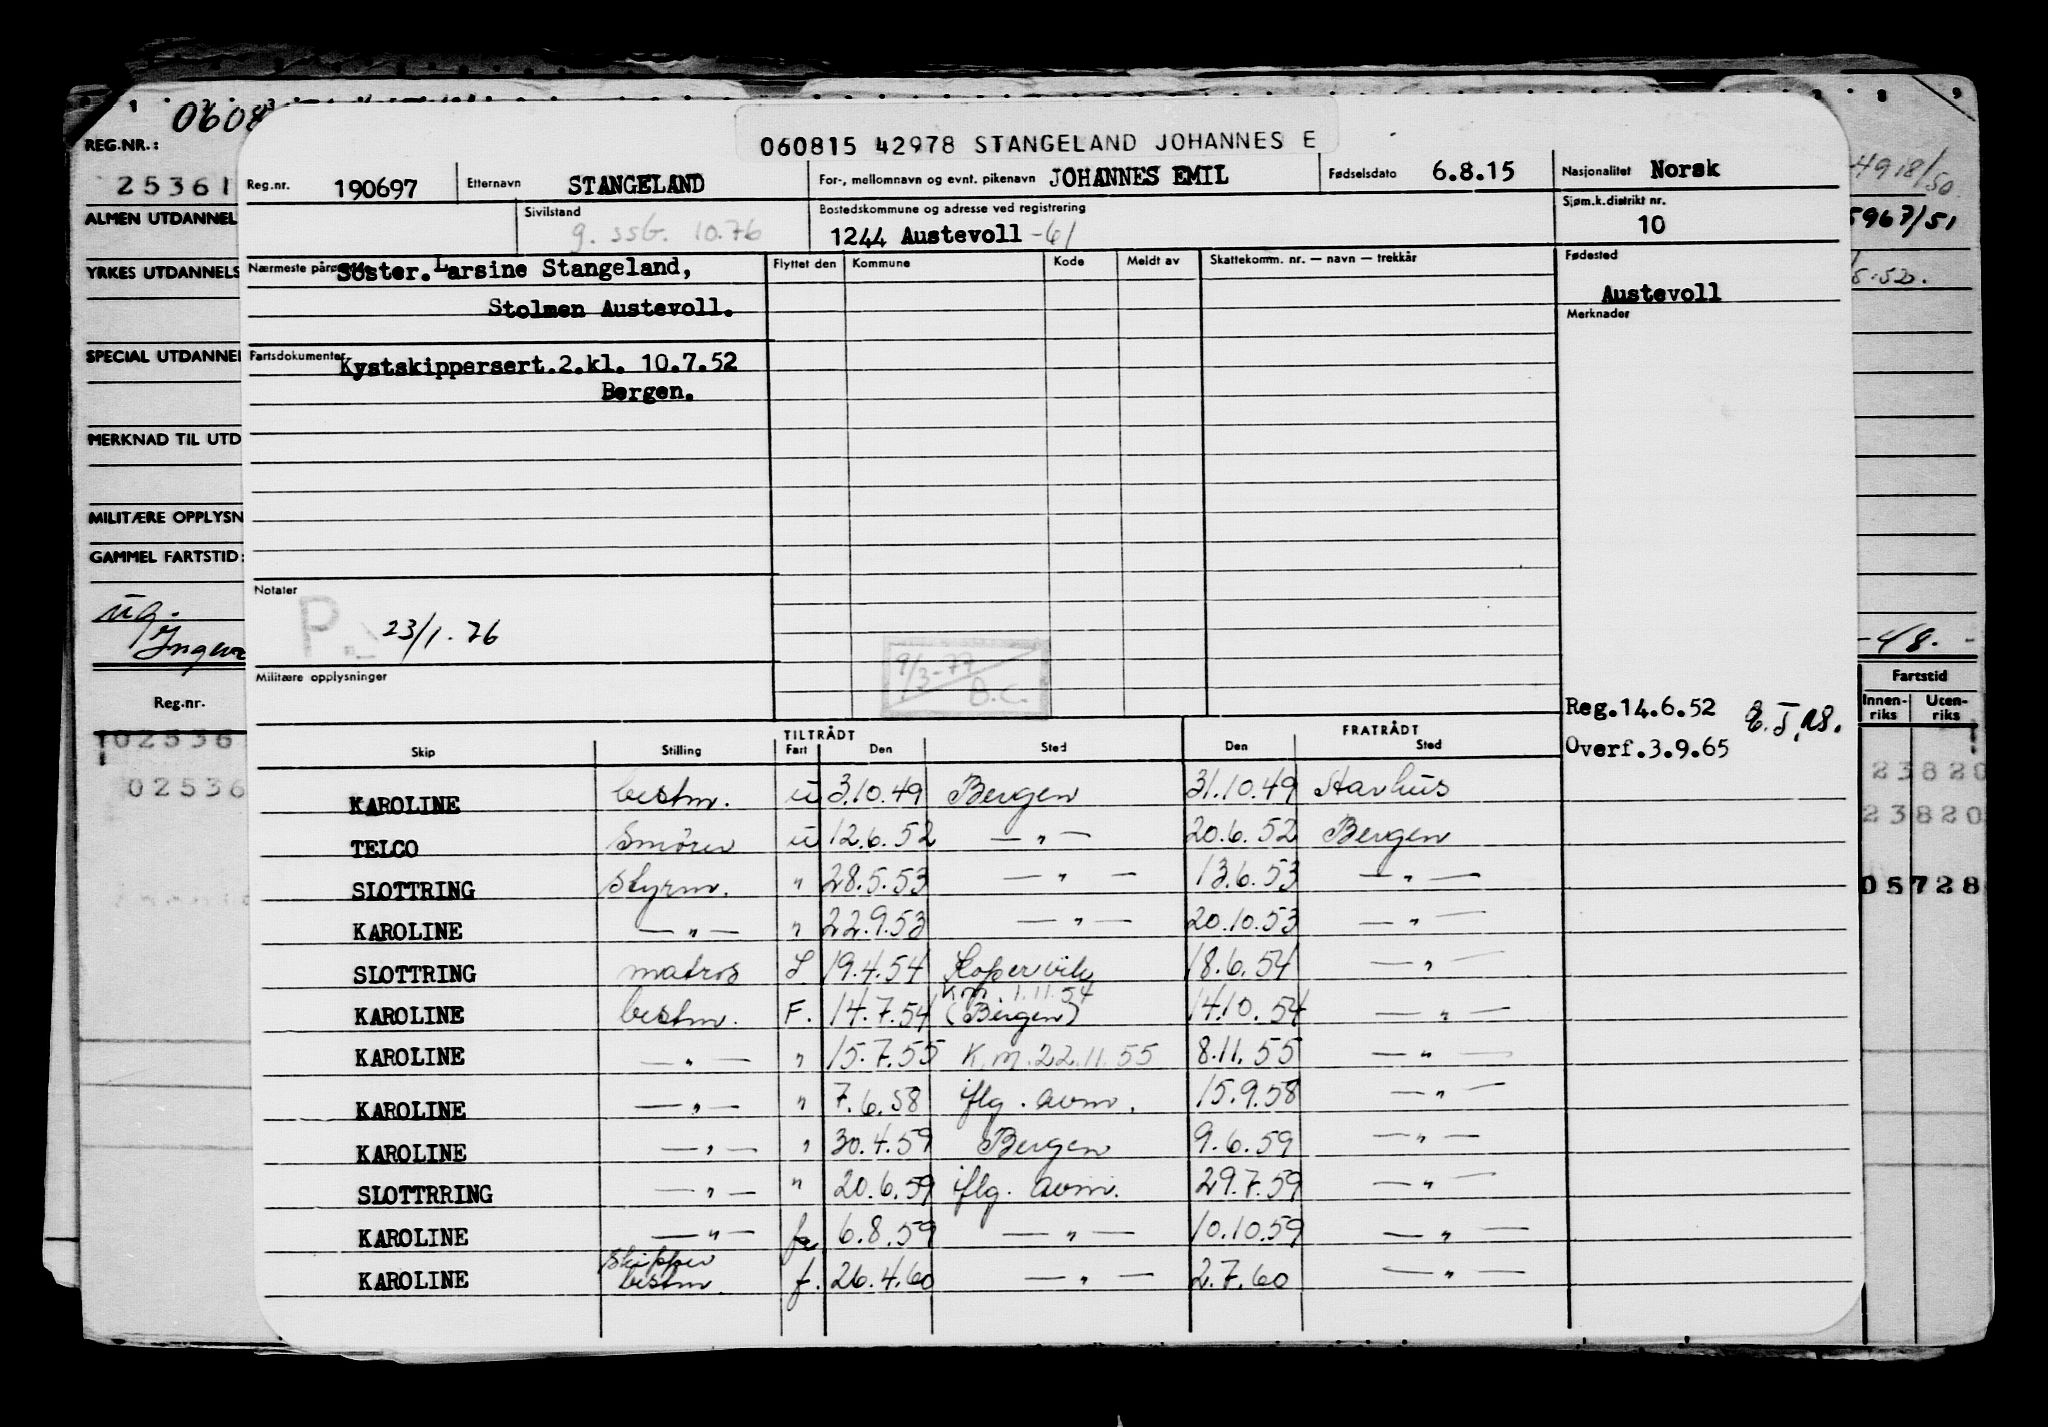 060815 42978 STANGELAND JOHANNES E
REG.NR.:
25361
Reg.nr. 190697 Etternavn STANGELAND For-, mellomnavn og evnt. pikenavn JOHANNES EMIL Fødselsdato 6.8.15 Nasjonalitet Norsk
4918/50
5967/51
ALMEN UTDANNEL
Sivilstand g. ssb. 10.76 Bostedskommune og adresse ved registrering 1244 Austevoll -61 Sjøm.k.distrikt nr. 10
YRKES UTDANNELS
Nærmeste påre Søster. Larsine Stangeland, Flyttet den Kommune Kode Meldt av Skattekomm. nr. — navn — trekkår Fødested
Stolmen Austevoll. Austevoll
Merknader
SPECIAL UTDANNEL
Fartsdokumenter Kystskippersert.2.kl. 10.7.52
Bergen.
MERKNAD TIL UTD
MILITÆRE OPPLYSN
GAMMEL FARTSTID:
Notater
P. 23/1.76
9/3-77
B.C.
Militære opplysninger
-48.-
Fartstid
Innen-riks Uten-riks
Reg.nr.
Reg.14.6.52
Overf.3.9.65
TILTRÅDT FRATRÅDT
Skip Stilling Fart Den Sted Den Sted
02536
02536
23820
23820
05728
KAROLINE bestm. u 3.10.49 Bergen 31.10.49 Stavhus
TELCO Smører u 12.6.52 — " — 20.6.52 Bergen
SLOTTRING styrm. " 28.5.53 — " — 13.6.53 — " —
KAROLINE — " — " 22.9.53 — " — 20.10.53 — " —
SLOTTRING matros S. 19.4.54 Kopervik 18.6.54 — " —
K.m. 1.11.54
KAROLINE bestm. F. 14.7.54 (Bergen) 14.10.54 — " —
KAROLINE — " — " 15.7.55 K.m.22.11.55 8.11.55 — " —
KAROLINE — " — " 7.6.58 iflg. avm. 15.9.58 — " —
KAROLINE — " — " 30.4.59 Bergen 9.6.59 — " —
SLOTTRRING — " — " 20.6.59 iflg. avm. 29.7.59 — " —
KAROLINE — " — 6.8.59 — " — 10.10.59 — " —
skipper
KAROLINE bestm. f. 26.4.60 — " — 2.7.60 — " —